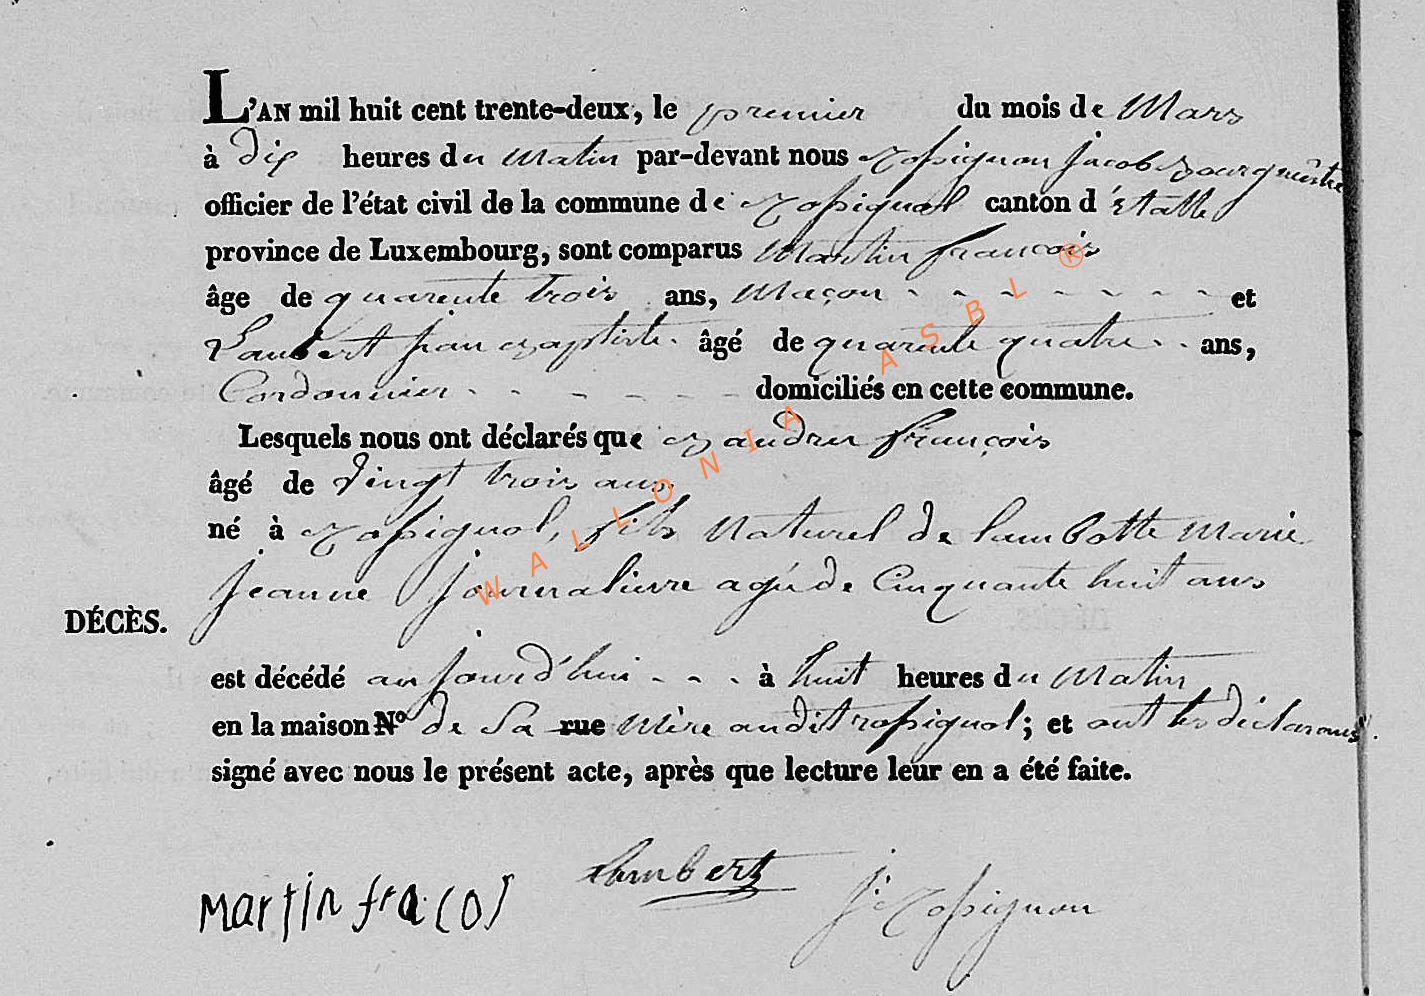 L'AN mil huit cent trente-deux, le premier du mois de Mars
à dix heures du Matin par-devant nous Rossignon Jacob Bourgmêstre
officier de l'état civil de la commune de Rossignol canton d'Etalle
province de Luxembourg, sont comparus Martin francois
âge de quarente trois ans, Maçon - - - - - - - et
Lambert jean Baptiste. âgé de quarente quatre - - ans,
Cordonnier - - - - - - domiciliés en cette commune.
Lesquels nous ont déclarés que françois
âgé de vingt trois ans
né à Rossignol, fils Naturel de lambotte Marie
Jeanne Journaliere agée de Cinquante huit ans
DÉCÈS.
est décédé aujourd'hui - - - à huit heures du Matin
en la maison N° de Sa rue Mère audit rossignol; et ont les déclarans
signé avec nous le présent acte, après que lecture leur en a été faite.
Lambert
Martin fraCOS
J: Rossignon
WALLONIA ASBL ®